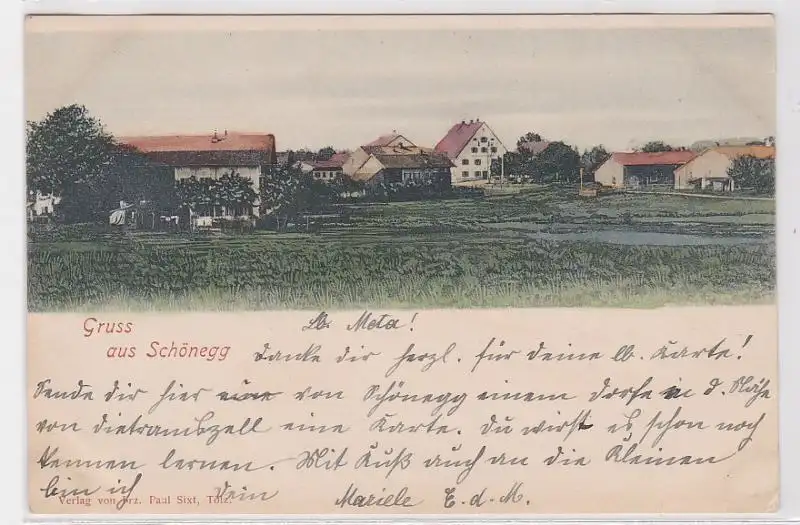 Gruss
aus Schönegg
Lb. Meta!
Danke dir herzl. für deine lb. Karte!
Sende dir hier eine von Schönegg einem Dorfe in d. Nähe
von Dietramszell eine Karte. Du wirst es schon noch
kennen lernen. Mit Kuß auch an die Kleinen
bin ich Dein Mariele E. d. M.
Verlag von Frz. Paul Sixt, Tölz.